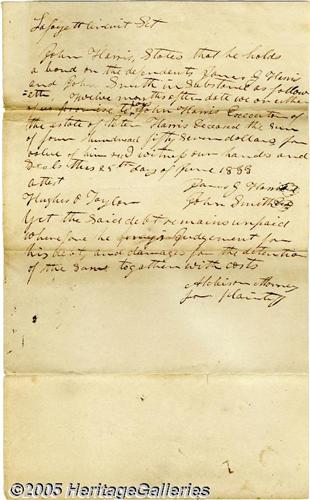 Lafayett Circuit Set
John Harris, States that he holds
a bond on the defendents James G Harris
and John Smith in Substance as follow
Twelve months after date we or either
of us promise to John Harris Executor of
the estate of Peter Harris deceased the sum
of four hundred fifty seven dollars for
value of him recd witness our hands and
Seals this 25th day of June 1838
attest James G Harris
Hughes O Taylor John Smith
Yet the Said debt remains unpaid
Wherefore he Judgement for
his debt, and damages for the detention
of the Same together with costs
Atchison Attorney
for plaintiff
©2005 HeritageGalleries